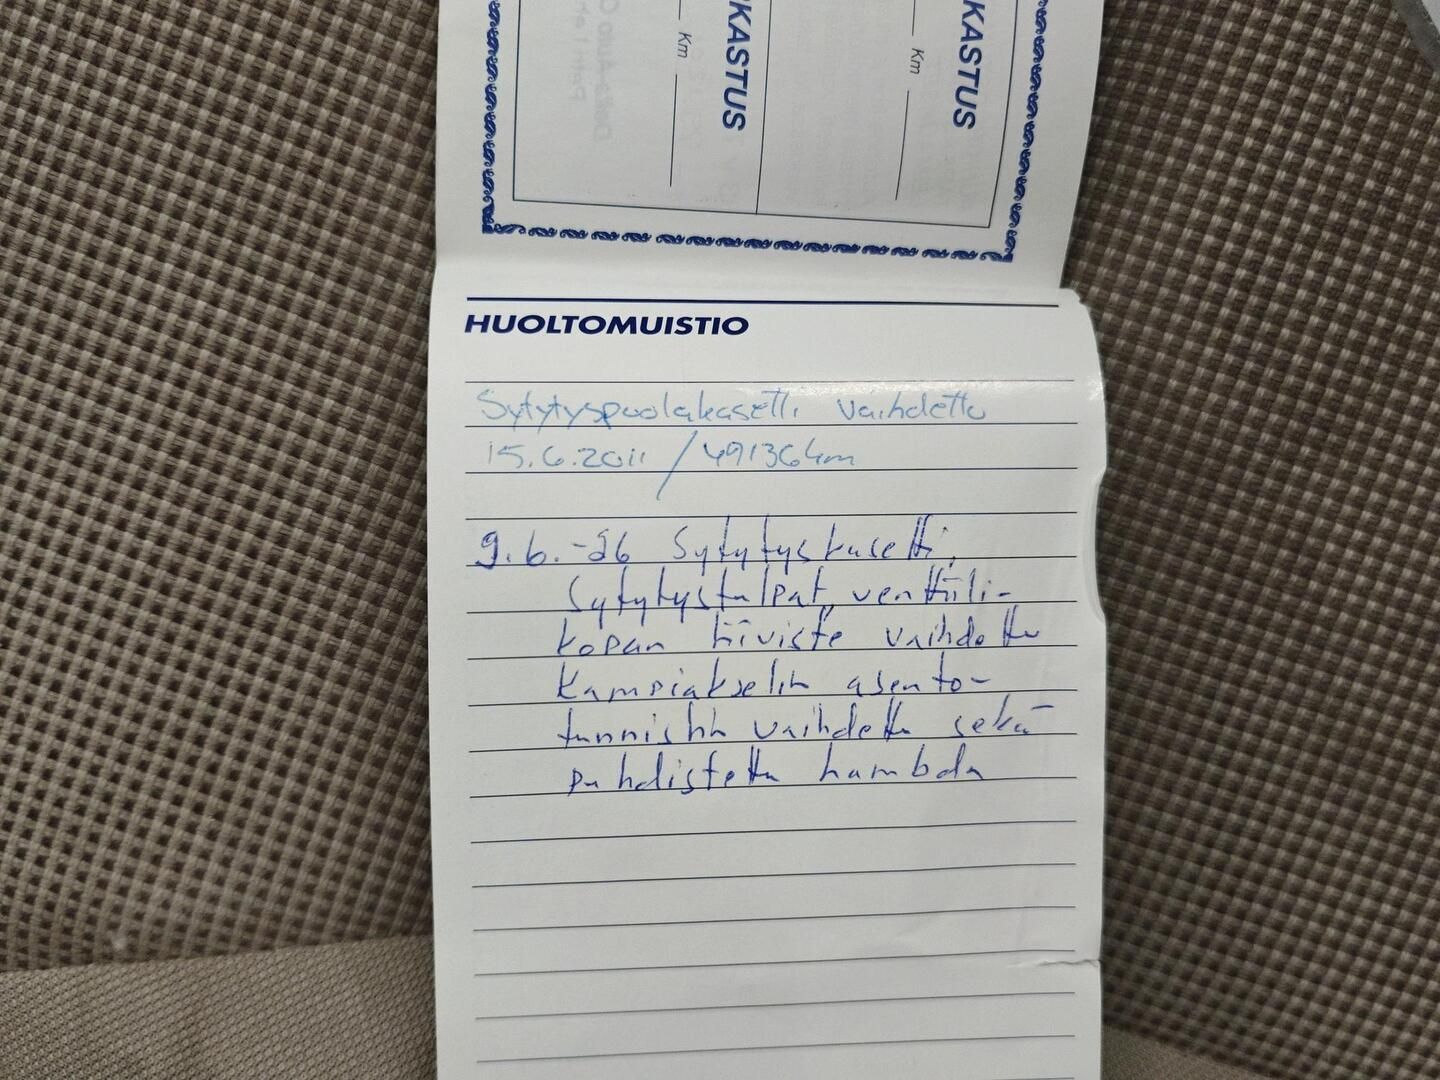 KASTUS
Km
KASTUS
Km
HUOLTOMUISTIO
Sytytyspuolakasetti vaihdettu
15.6.2011 / 491364km
9.6.-26 Sytytyskasetti,
Sytytystulpat, venttiili-
kopan tiiviste vaihdettu
Kampiakselin asento-
tunnistin vaihdettu sekä
puhdistettu hambda